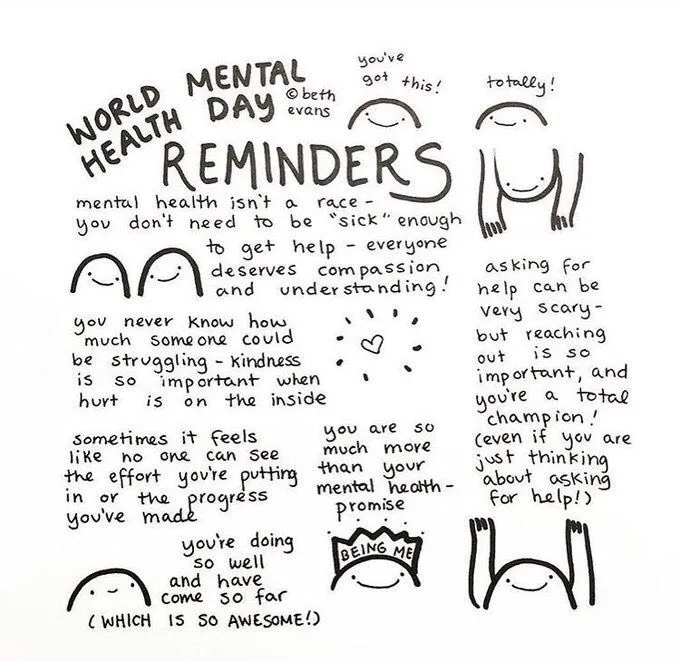 WORLD MENTAL
HEALTH DAY
© beth
evans
REMINDERS
you've
got this!
totally!
mental health isn't a race -
you don't need to be "sick" enough
to get help - everyone
deserves compassion
and understanding!
you never know how
much someone could
be struggling - kindness
is so important when
hurt is on the inside
asking for
help can be
very scary -
but reaching
out is so
important, and
you're a total
champion!
(even if you are
just thinking
about asking
for help!)
sometimes it feels
like no one can see
the effort you're putting
in or the progress
you've made
you are so
much more
than your
mental health -
promise
BEING ME
you're doing
so well
and have
come so far
(WHICH IS SO AWESOME!)